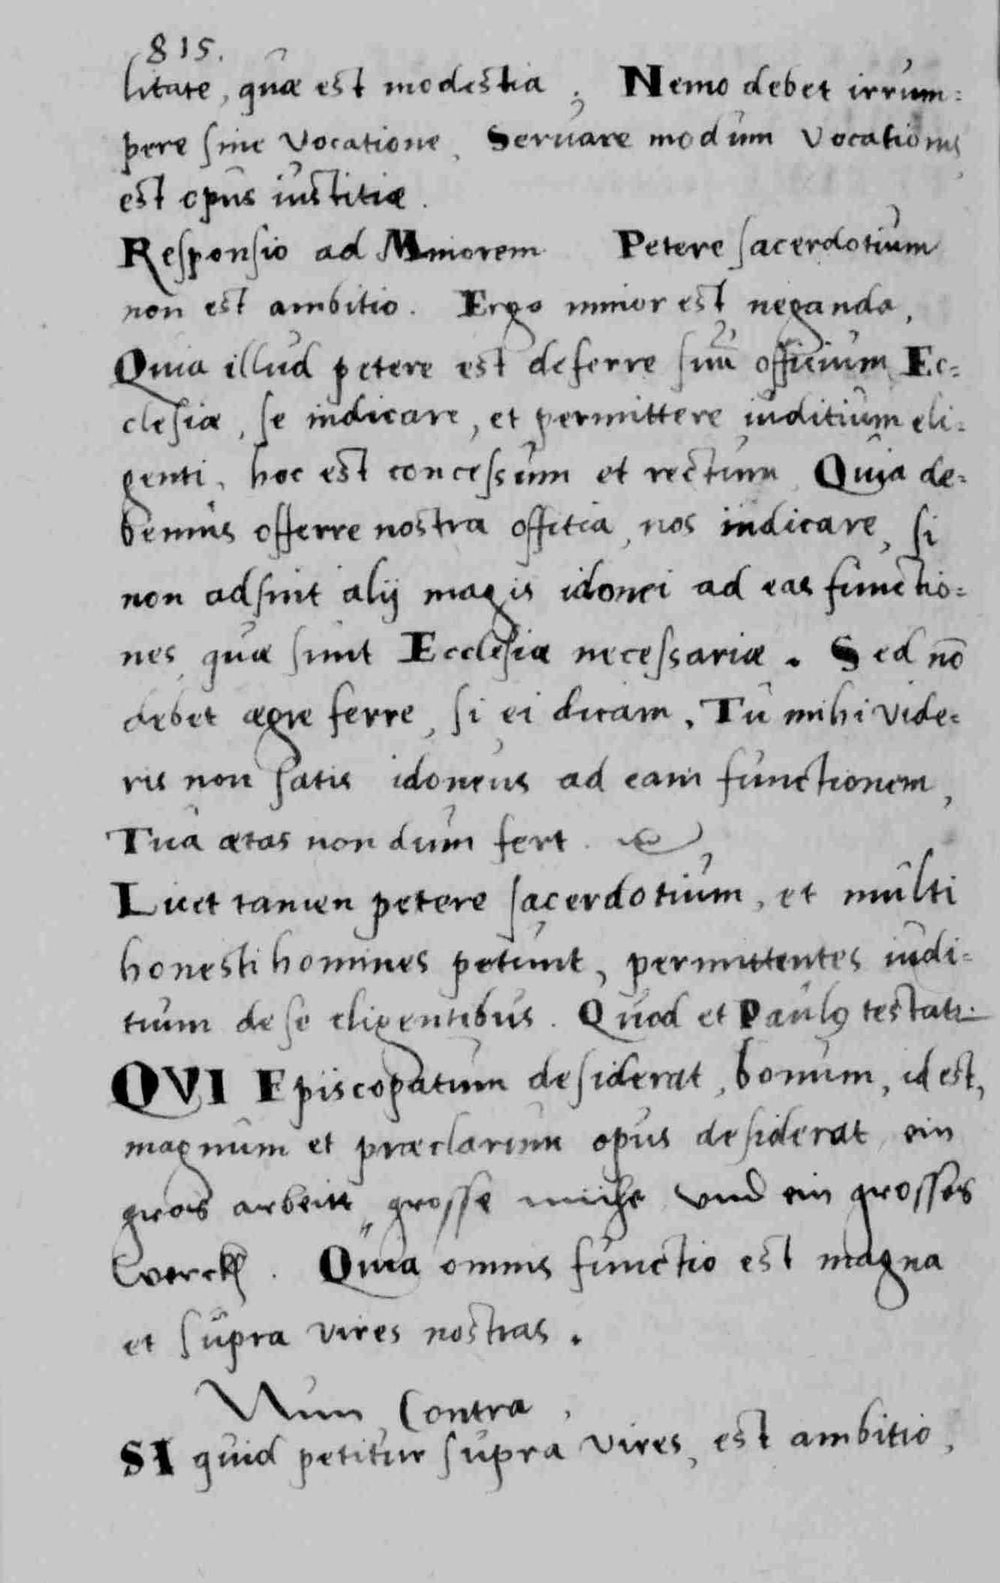 815.
litate, quæ est modestia. Nemo debet irrum:
pere sine vocatione, Seruare modum vocationis
est opus iustitiæ.
Responsio ad Minorem Petere sacerdotium
non est ambitio. Ergo minor est neganda,
Quia illud petere est deferre suũ officium Ec:
clesiæ, se indicare, et permittere iuditium eli:
genti, hoc est concessum et rectum, Quia de:
bemus offerre nostra offitia, nos indicare, si
non adsint alij magis idonei ad eas functio:
nes quæ sunt Ecclesiæ necessariæ. Sed nō
debet ægre ferre, si ei dicam, Tu mihi vide:
ris non satis idoneus ad eam functionem,
Tua ætas non dum fert.
Licet tamen petere sacerdotium, et multi
honesti homines petunt, permittentes iudi:
tium de se eligentibus. Quod et Paulꝯ testatr.
QVI Episcopatum desiderat, bonum, id est,
magnum et præclarum opus desiderat, ein
gros arbeitt, grosse mühe vnd ein grosses
werck. Quia omnis functio est magna
et supra vires nostras.
Nun Contra,
SI quid petitur supra vires, est ambitio,